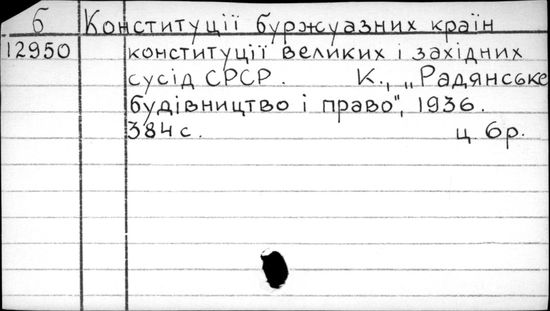 б Конституції буржуазних країн
12950 конституції великих і західних
сусід СРСР. К., „Радянське
будівництво і право", 1936.
384 с. ц. 6р.